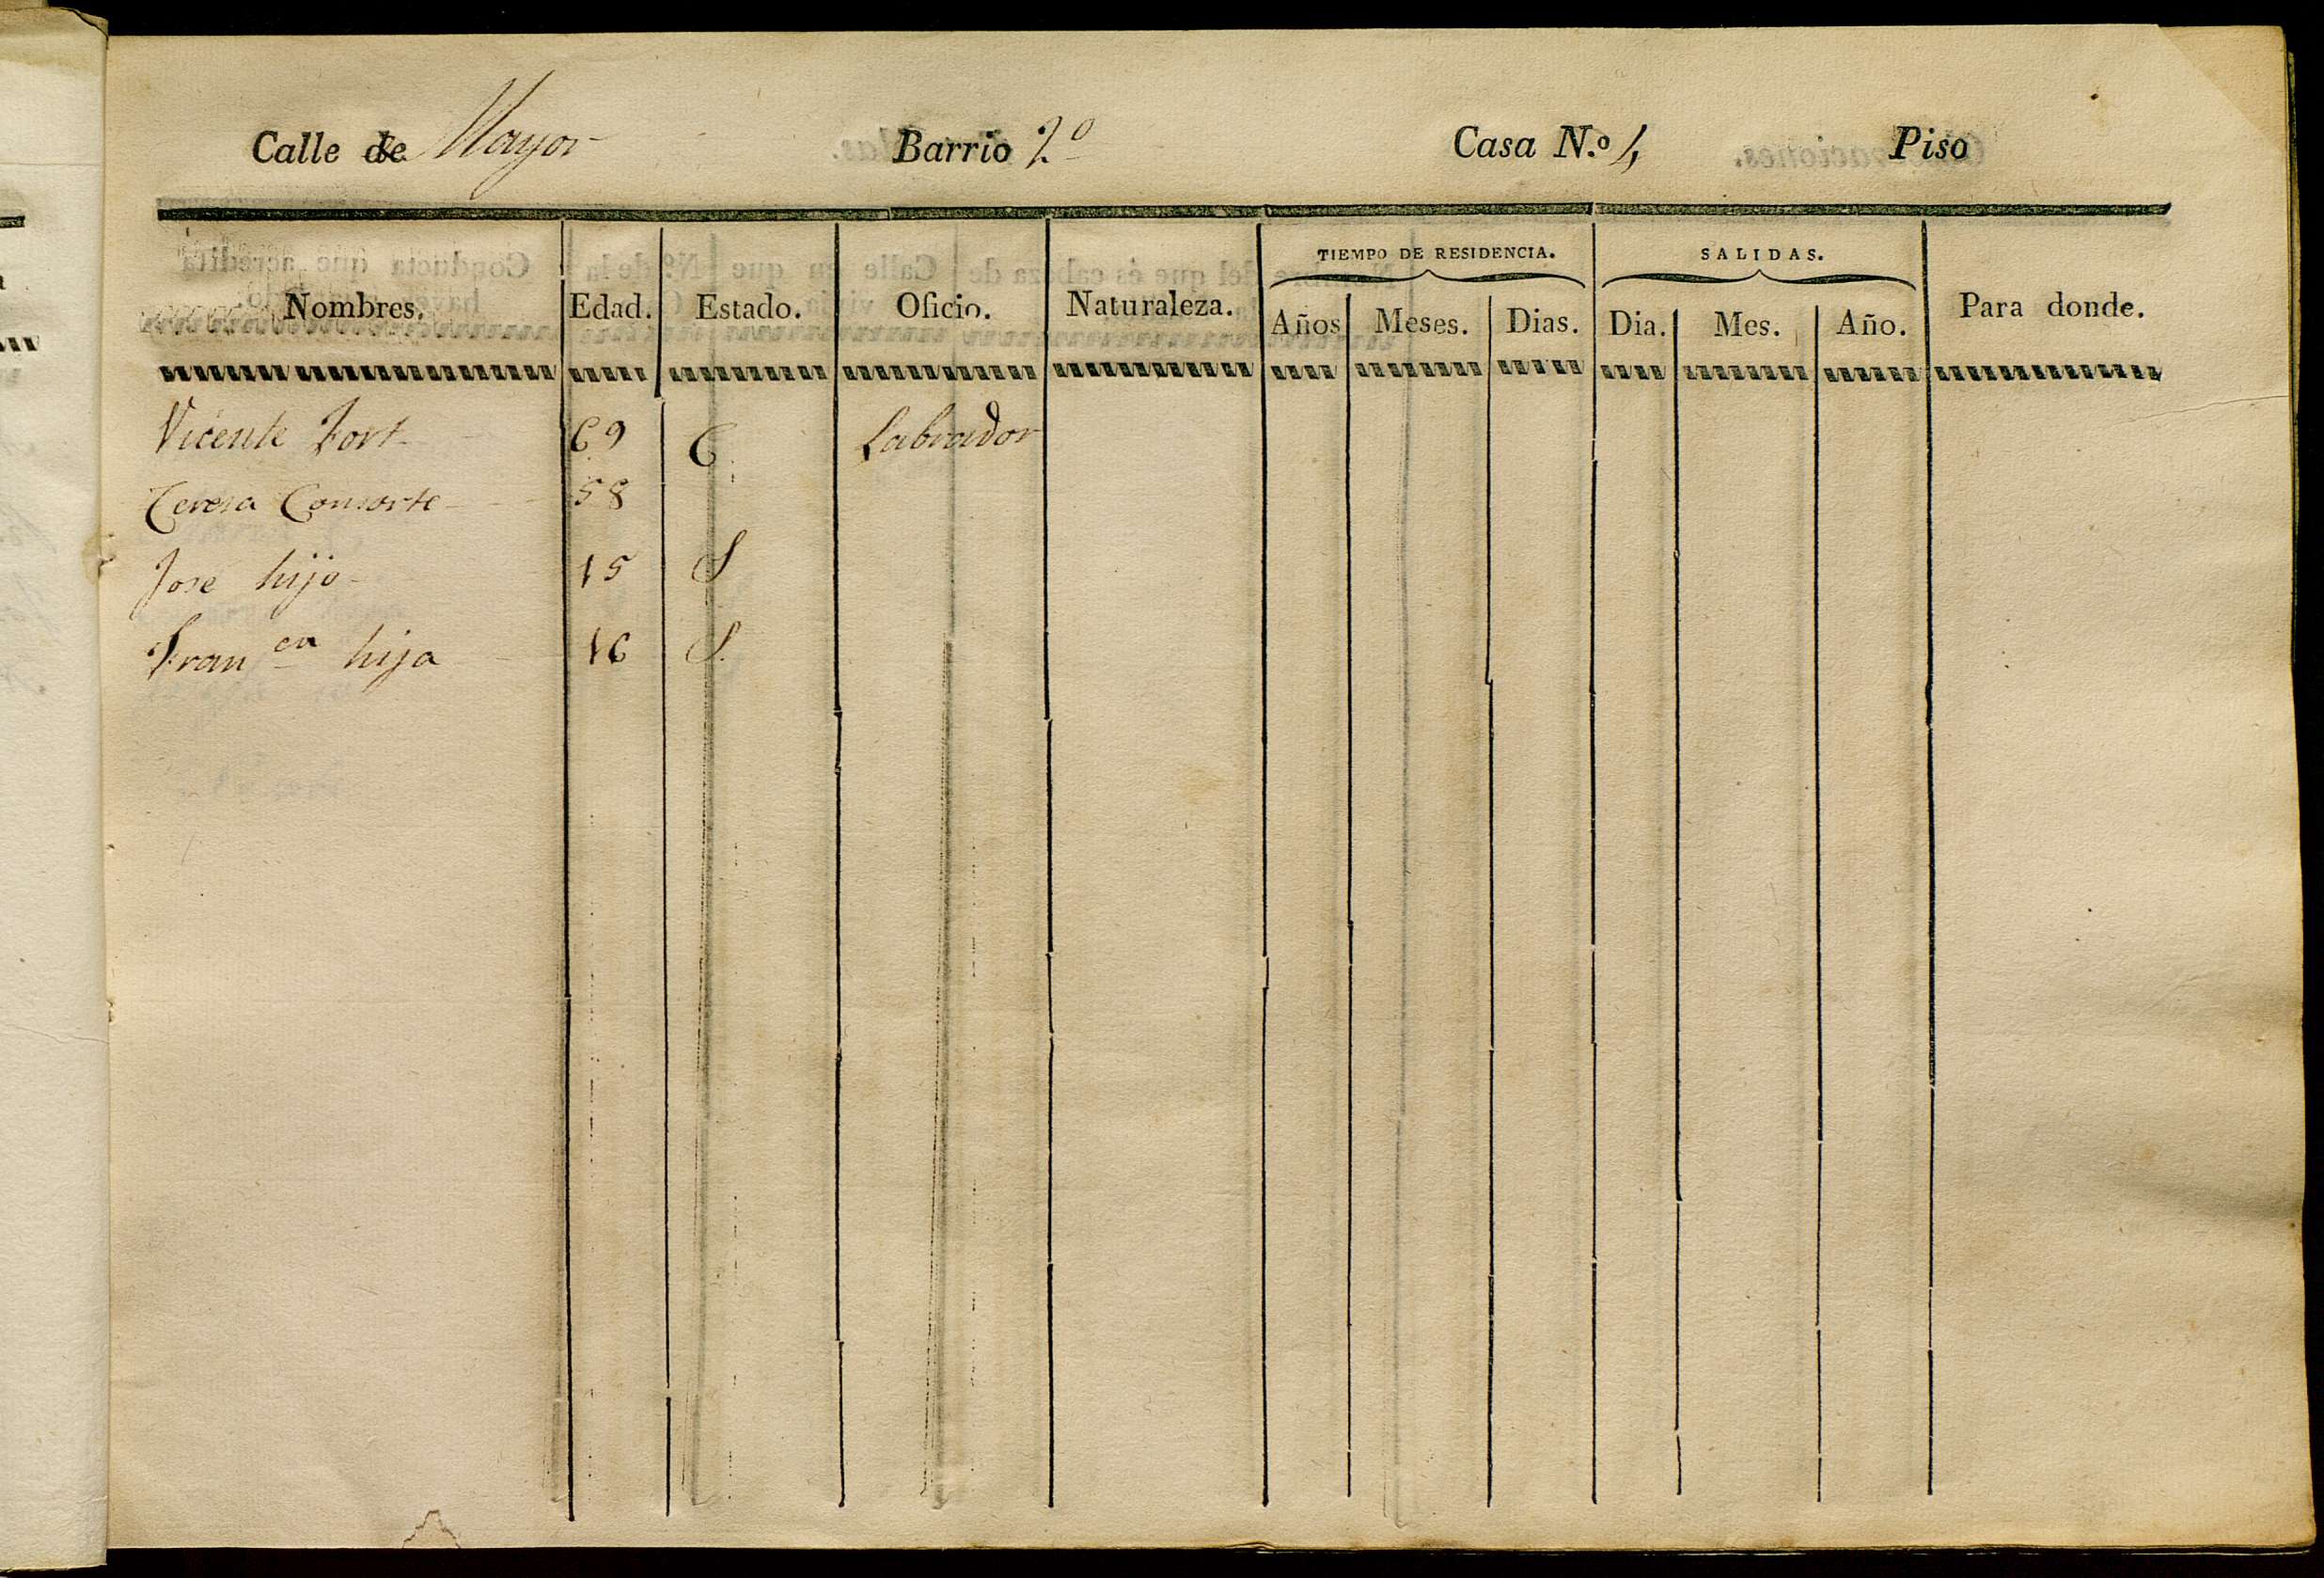 Calle de Mayor Barrio 2.º Casa N.º 1, Piso
TIEMPO DE RESIDENCIA. SALIDAS.
Nombres. Edad. Estado. Oficio. Naturaleza. Años Meses. Dias. Dia. Mes. Año. Para donde.
Vicente Fort 69 C. Labrador
Teresa Consorte 58
Jose hijo 15 S
Fran.ca hija 16 S.